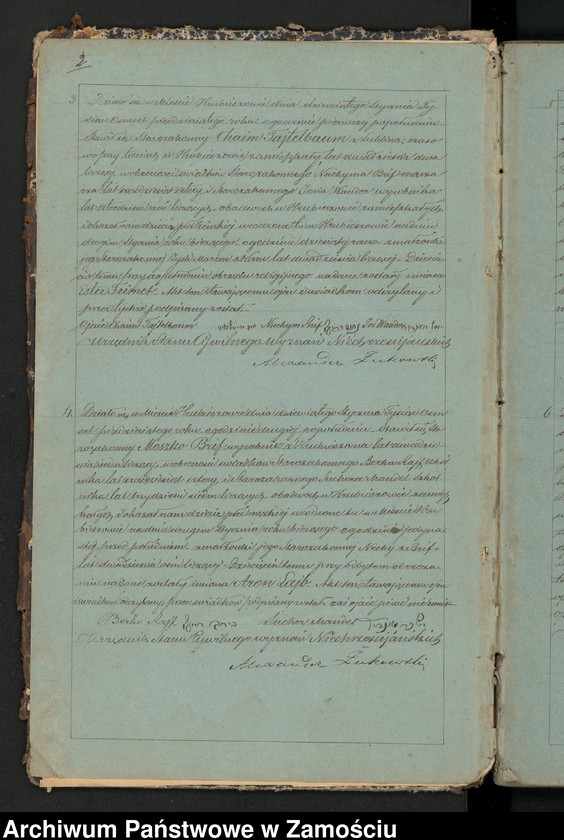 2
3 Działo się w Mieście Hrubieszowie dnia dziewiątego Stycznia Tysiąc
Ośmset pięćdziesiątego roku o godzinie pierwszej popołudniu
Stawił się Starozakonny Chaim Tajtelbaum z Lublina, czaso
wo przy teściu w Hrubieszowie zamieszkały, lat dwadzieścia dwa
liczący, w obecności świadków Starozakonnego Nuchyma Brif
lat i Starozakonnego Josia Wajdor wyrobnika
lat liczących, obadwóch w Hrubieszowie zamieszkałych
i okazał nam dziecię płci żeńskiej urodzone tu w Hrubieszowie na dniu
drugim Stycznia roku bieżącego o godzinie dziesiątej rano z małżonki
jego Starozakonnej lat dwadzieścia liczącej. Dziecię
ciu temu przy odbytym obrzędzie religijnego nadane zostały imiona
Ester Frimet. Akt ten Stawającemu ojcu i świadkom odczytany i
przez tychże podpisany został.
Ojciec Chaim Tajtelbaum Nuchym Brif Joś Wajdor
Urzędnik Stanu Cywilnego Wyznań Niechrześcijańskich
Alexander Żukowski
4. Działo się w Mieście Hrubieszowie dnia dziewiątego Stycznia Tysiąc Ośm
set pięćdziesiątego roku o godzinie drugiej popołudniu. Stawił się Sta
rozakonny Moszko Brif wyrobnik z Hrubieszowa lat dwadzie
ścia liczący, w obecności świadków Starozakonnego Berka Rajf, szkol
nika lat cztery, i Starozakonnego Suchera Mandel szkol
nika lat trzydzieści siedm liczących, obadwóch w Hrubieszowie zamiesz
kałych i okazał nam dziecię płci męzkiej urodzone tu w Mieście Hru
bieszowie na dniu drugim Stycznia roku bieżącego o godzinie jedyna
stej przed południem z małżonki jego Starozakonnej Nechy z
lat dwadzieścia ośm liczącej. Dziecięciu temu przy odbytym obrzeza
niu nadane zostały imiona Aron Lejb. Akt ten Stawającemu ojcu
i świadkom odczytany, przez świadków podpisany został zaś ojciec pisać nie umie.
Berko Rajf Sucher Mandel
Urzędnik Stanu Cywilnego wyznań Niechrześcijańskich
Alexander Żukowski
5
6
Archiwum Państwowe w Zamościu